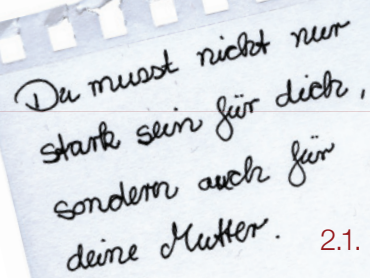 Du musst nicht nur
stark sein für dich,
sondern auch für
deine Mutter.
2.1.